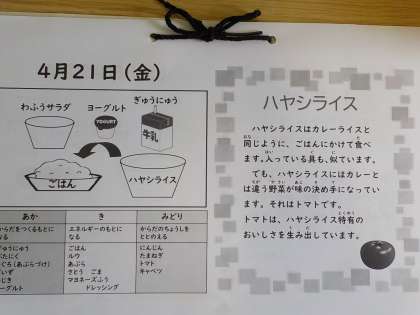 4月21日(金)
わふうサラダ
ヨーグルト
ぎゅうにゅう
YOGURT
牛乳
ごはん
ハヤシライス
あか
き
みどり
からだをつくるもとに
なる
エネルギーのもとに
なる
からだのちょうしを
ととのえる
ぎゅうにゅう
ごはん
ルウ
あぶら
さとう ごま
マヨネーズふう
ドレッシング
にんじん
たまねぎ
トマト
キャベツ
ハヤシライス
ハヤシライスはカレーライスと
同じように、ごはんにかけて食べ
ます。入っている具も、似ています。
でも、ハヤシライスにはカレーと
は違う野菜が味の決め手になってい
ます。それはトマトです。
トマトは、ハヤシライス特有の
おいしさを生み出しています。